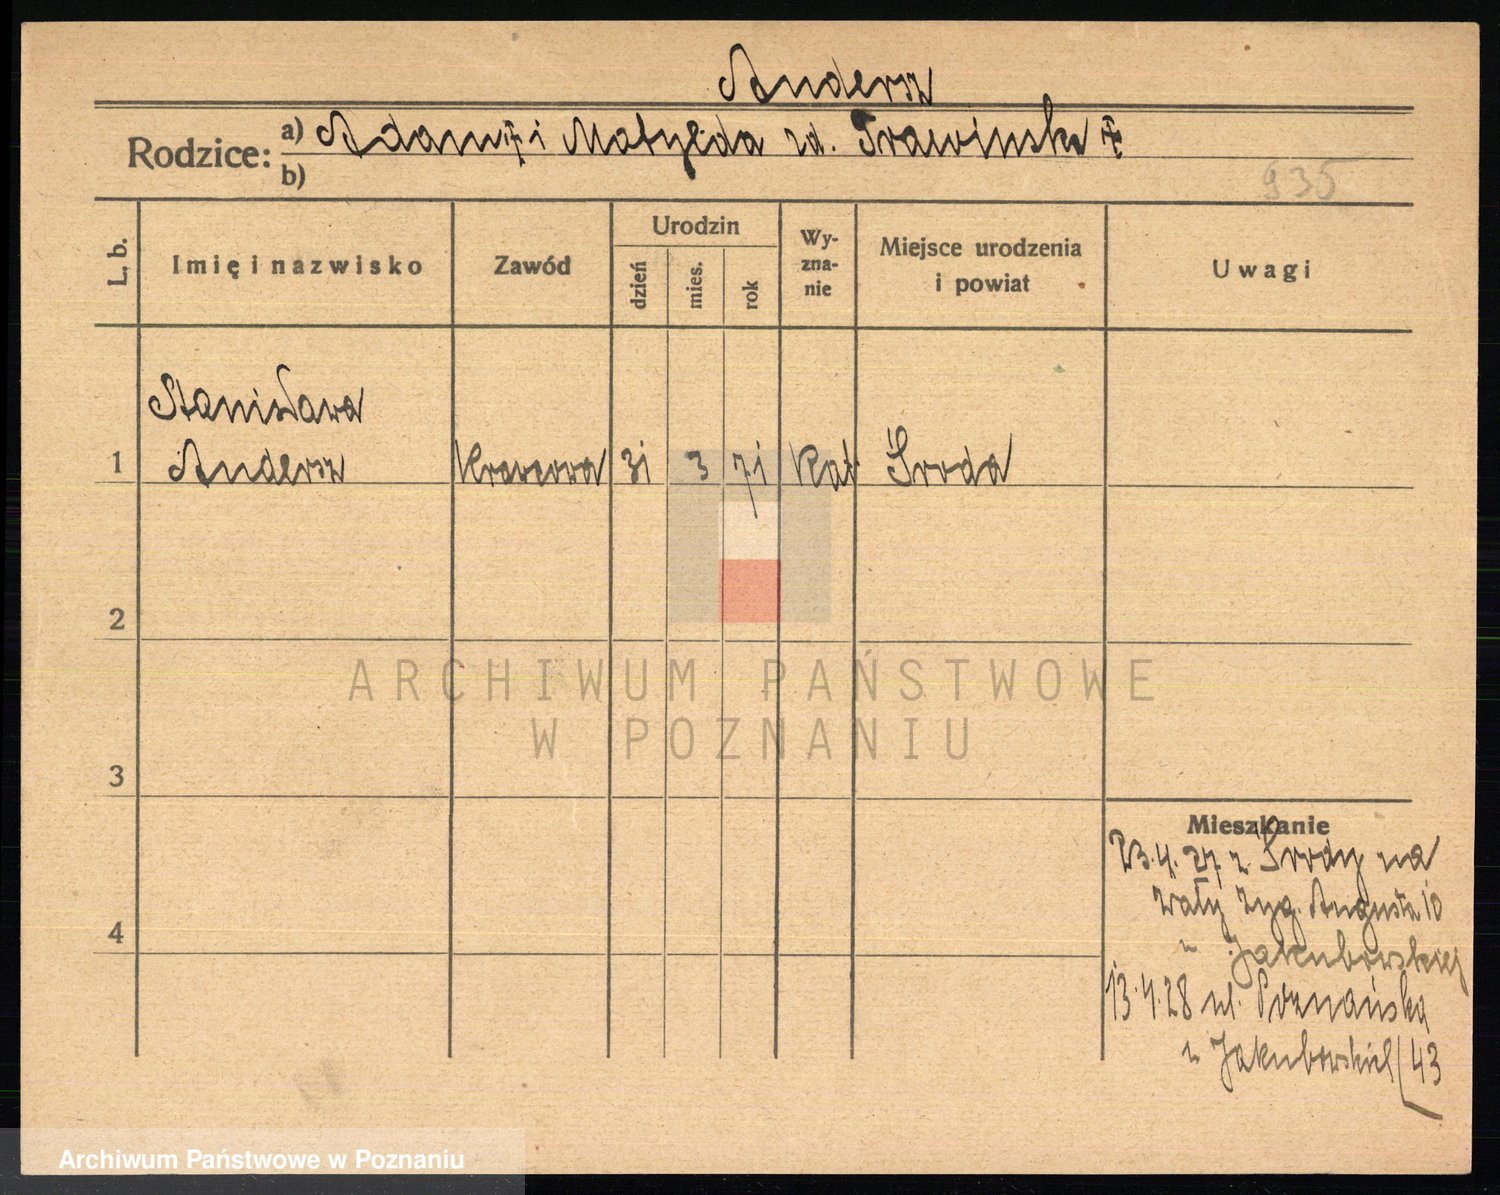 Andersz
Rodzice: a) Adam † i Matylda zd. Trawinska †
b)
935
L. b.
Imię i nazwisko
Zawód
Urodzin
dzień
mies.
rok
Wy-
zna-
nie
Miejsce urodzenia
i powiat
Uwagi
Stanisława
1 Andersz Krawcowa 31 3 71 Kat Środa
2
3
4
Mieszkanie
23.4.27 z Środy na
Wały Zyg. Augusta 10
u Jakubowskiej
13.4.28 ul. Poznańska
u Jakubowskiej 43
ARCHIWUM PAŃSTWOWE
W POZNANIU
Archiwum Państwowe w Poznaniu